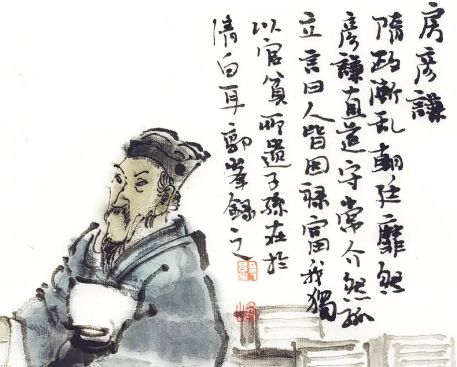 房彦謙
隋政漸乱朝廷靡然
彦謙直道守常介然孤
立言曰人皆因禄富我獨
以官貧所遺子孫在於
清白耳鄭峯録之